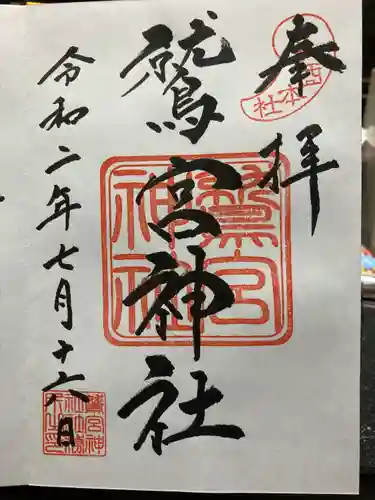 奉拝
酉の本社
鷲宮神社
鷲宮神社
令和二年七月十六日